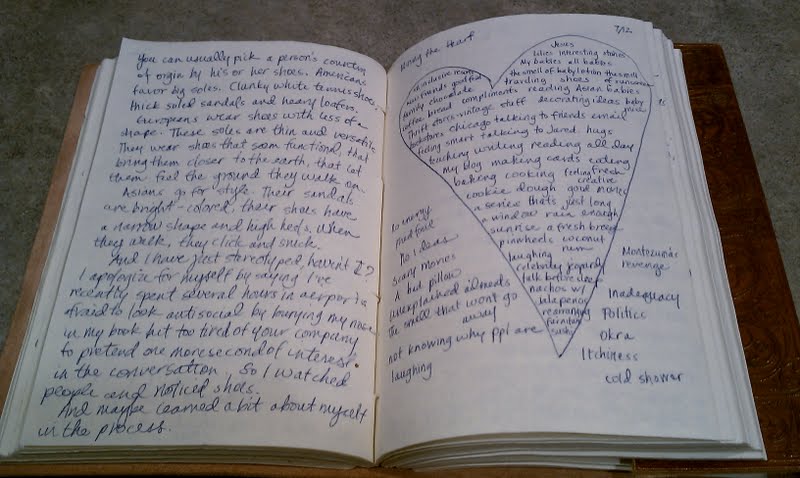 You can usually pick a person's country
of orgin by his or her shoes. Americans
favor big soles. Clunky white tennis shoes,
thick soled sandals and heavy loafers.
Europeans wear shoes with less of a
shape. These soles are thin and versatile.
They wear shoes that seem functional, that
bring them closer to the earth, that let
them feel the ground they walk on.
Asians go for style. Their sandals
are bright-colored, their shoes have
a narrow shape and high heels. When
they walk, they click and snick.
And I have just stereotyped, haven't I?
I apologize for myself by saying I've
recently spent several hours in airports
afraid to look antisocial by burying my nose
in my book but too tired of your company
to pretend one more second of interest
in the conversation. So I watched
people and noticed shoes.
And maybe learned a bit about myself
in the process.
7/12
the Heart
Jesus
lilies interesting stories
My babies all babies
the smell of baby lotion the smell
traveling shoes of cinnamon
new friends good food
family chocolate
coffee bread compliments reading Asian babies
Thrift stores-vintage stuff decorating ideas baby
mine
bookstores Chicago talking to friends email
feeling smart talking to Jared hugs
teaching writing reading all day
my blog making cards eating
baking cooking feeling fresh
creative
cookie dough good movies
a series that's just long
enough
a window rain
sunrise a fresh breeze
pinwheels coconut
rum
laughing
celebrity jeopardy
talk before sleep
nachos w/
jalapenos
rearranging
furniture
sushi
no energy
mad face
no ideas
Scary movies
A bad pillow
Unexplained ailments
The smell that won't go
away
not knowing why ppl are
laughing
Montezuma's
revenge
Inadequacy
Politics
Okra
Itchiness
cold shower